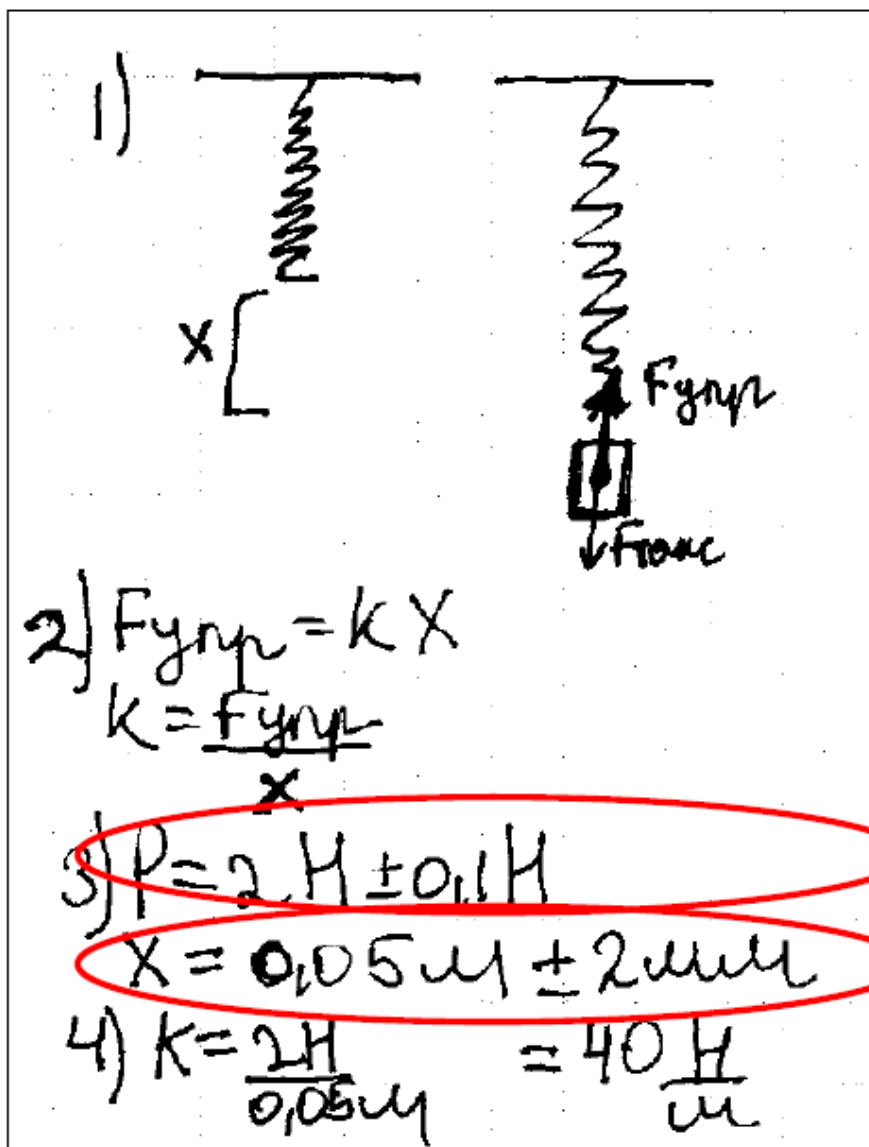 1)
X
Fупр
Fтяж
2) Fупр = kX
k = Fупр / x
3) P = 2 H ± 0,1 H
X = 0,05 м ± 2 мм
4) K = 2H / 0,05м = 40 H / м